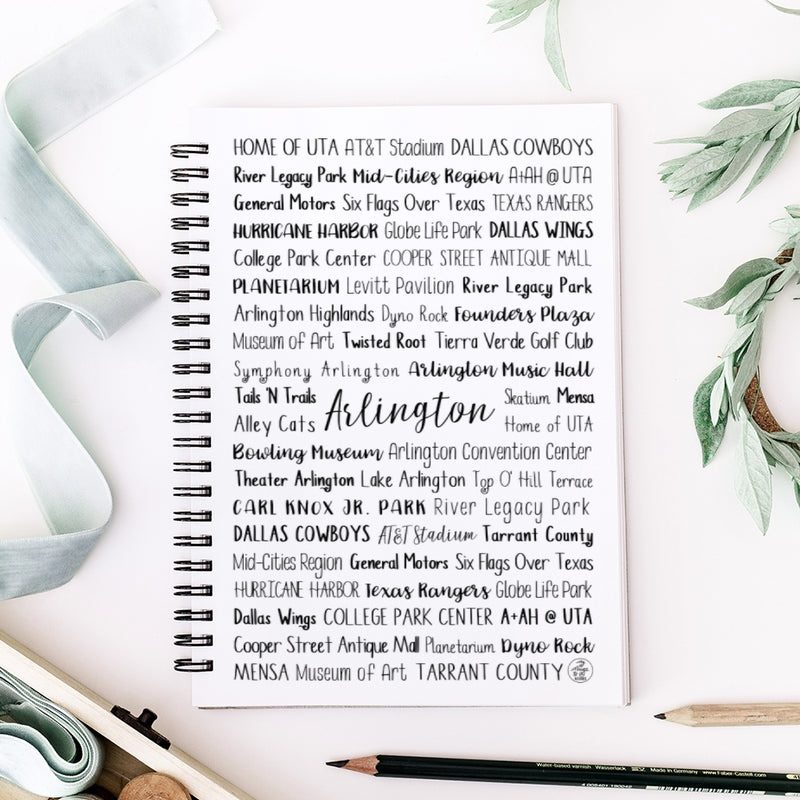 HOME OF UTA AT&T Stadium DALLAS COWBOYS
River Legacy Park Mid-Cities Region A+AH @ UTA
General Motors Six Flags Over Texas TEXAS RANGERS
HURRICANE HARBOR Globe Life Park DALLAS WINGS
College Park Center COOPER STREET ANTIQUE MALL
PLANETARIUM Levitt Pavilion River Legacy Park
Arlington Highlands Dyno Rock Founders Plaza
Museum of Art Twisted Root Tierra Verde Golf Club
Symphony Arlington Arlington Music Hall
Tails 'N Trails Skatium Mensa
Arlington
Alley Cats Home of UTA
Bowling Museum Arlington Convention Center
Theater Arlington Lake Arlington Top O' Hill Terrace
CARL KNOX JR. PARK River Legacy Park
DALLAS COWBOYS AT&T Stadium Tarrant County
Mid-Cities Region General Motors Six Flags Over Texas
HURRICANE HARBOR Texas Rangers Globe Life Park
Dallas Wings COLLEGE PARK CENTER A+AH @ UTA
Cooper Street Antique Mall Planetarium Dyno Rock
MENSA Museum of Art TARRANT COUNTY
Water-based varnish Wasserlack Made in Germany www.Faber-Castell.com